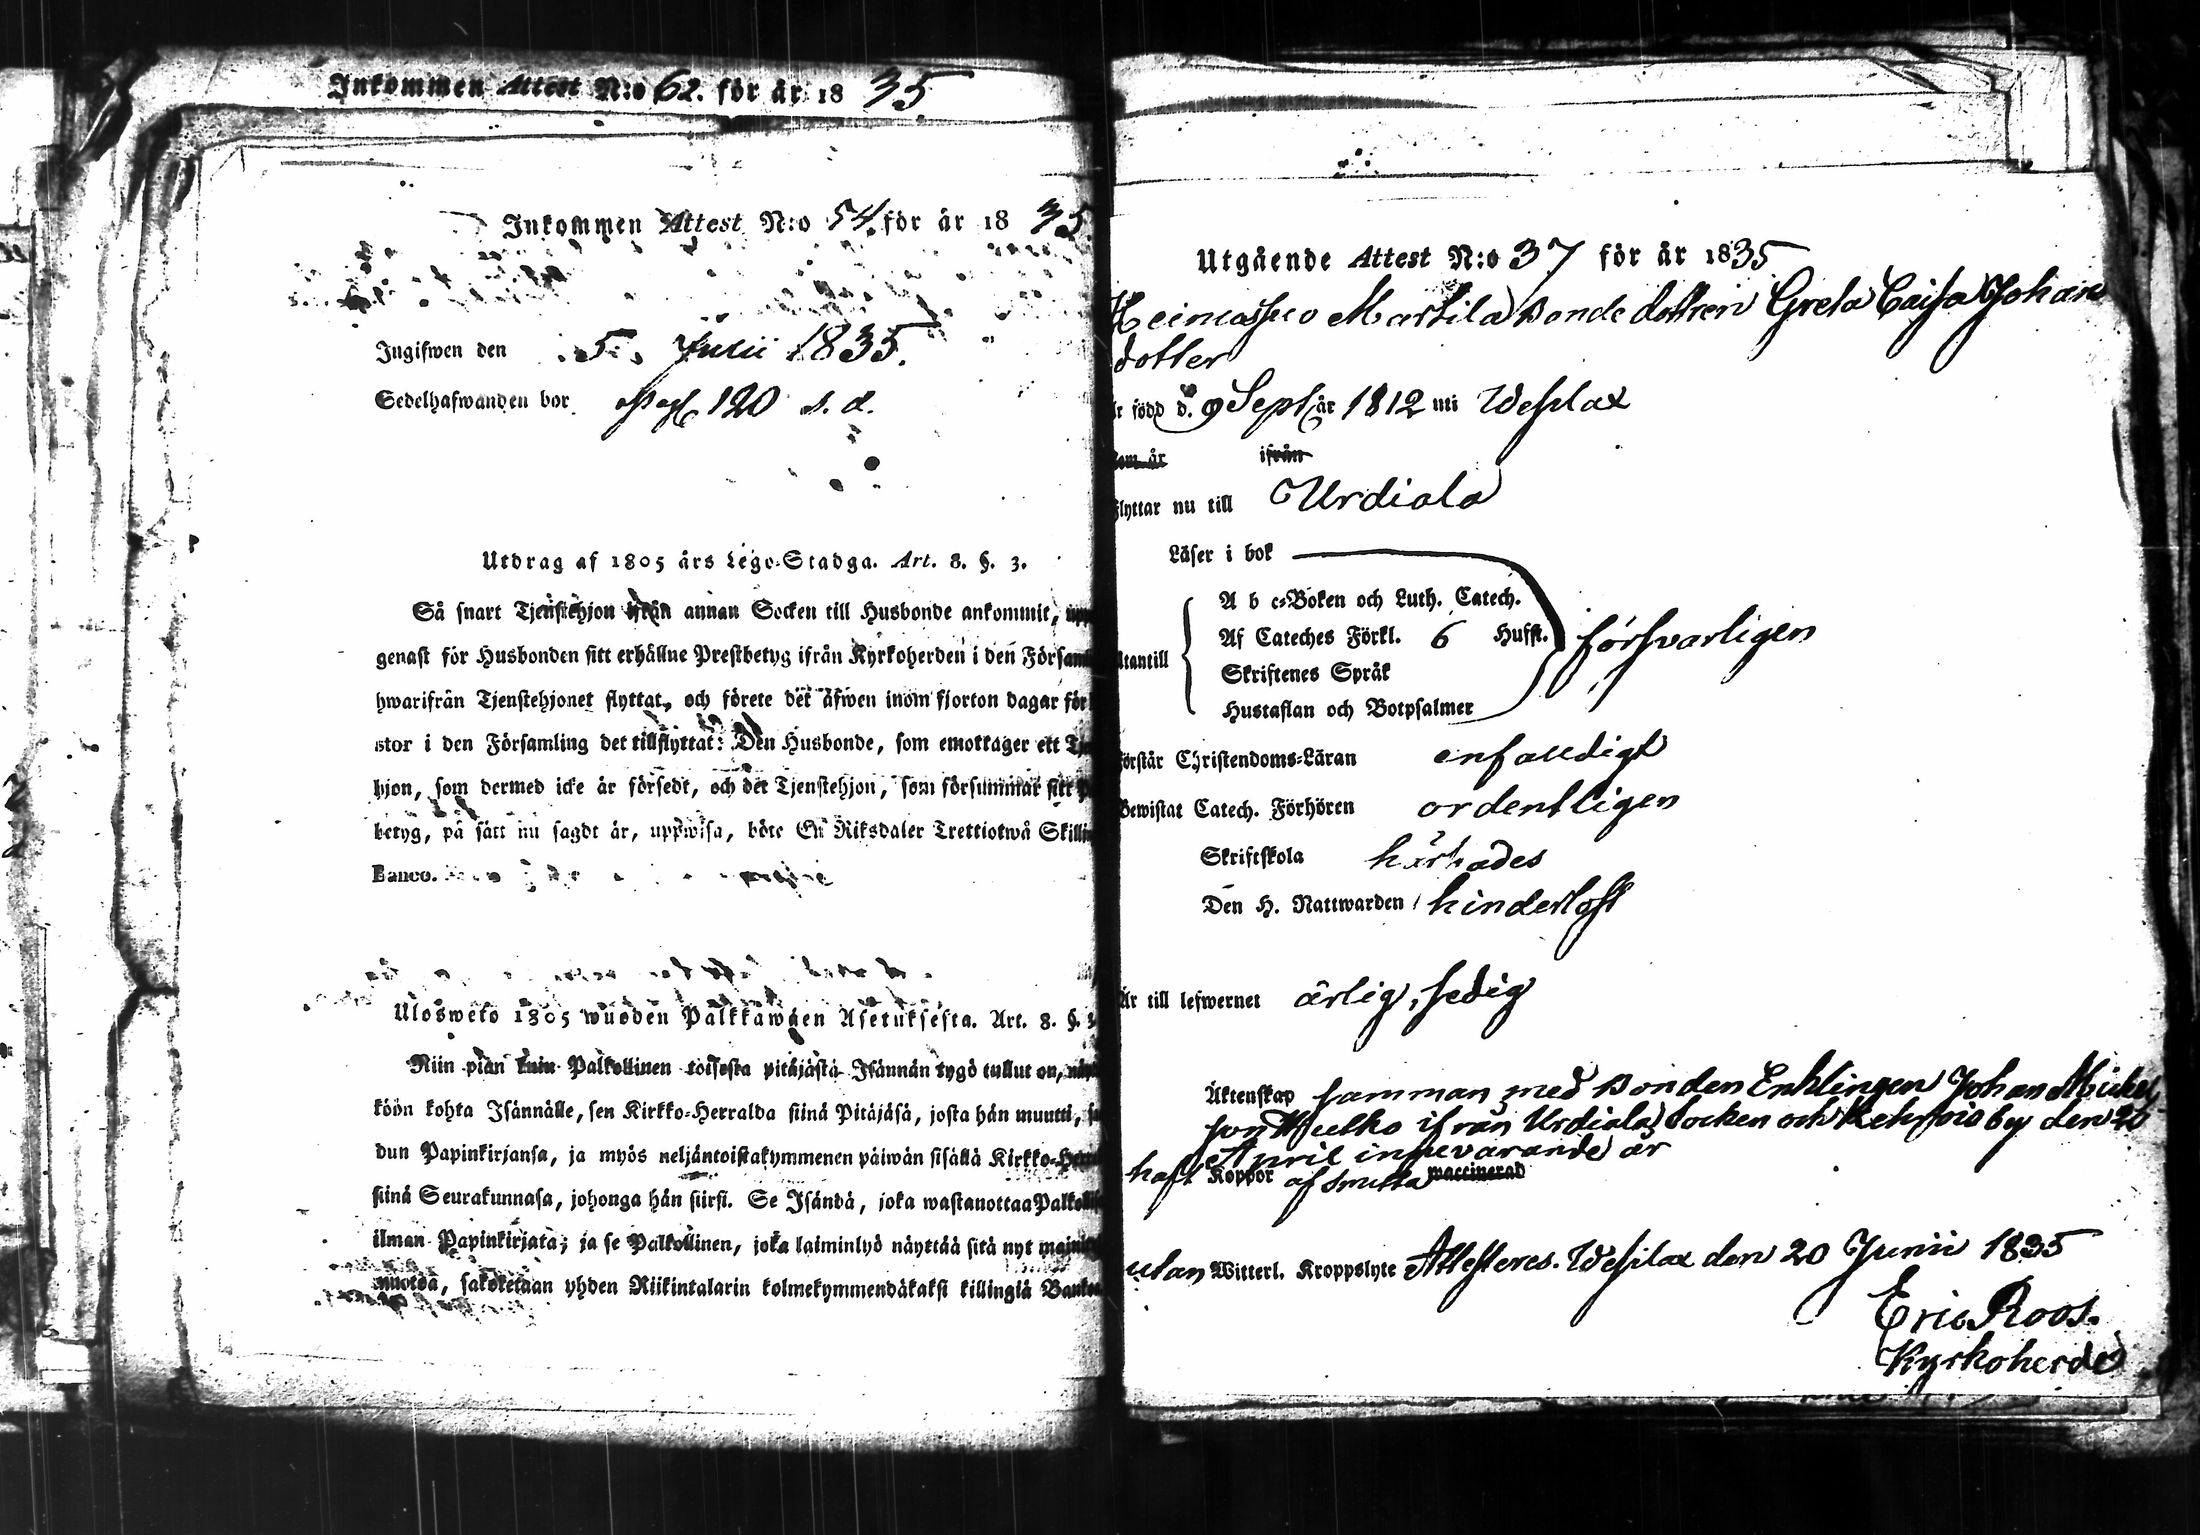 Inkommen Attest N:o 62. för år 1835
Inkommen Attest N:o 54. för år 1835
Ingifwen den 5. Julii 1835.
Sedelhafwanden bor pag 120 s. d.
Utdrag af 1805 års Lego-Stadga. Art. 8. §. 3.
Så snart Tjenstehjon ifrån annan Socken till Husbonde ankommit,
genast för Husbonden sitt erhållne Prestbetyg ifrån Kyrkoherden i den
hwarifrån Tjenstehjonet flyttat, och förete det äfwen inom fjorton dagar för
stor i den Församling det tillflyttat: Den Husbonde, som emottager ett
hjon, som dermed icke är försedt, och det Tjenstehjon, som försummar sitt
betyg, på sätt nu sagdt är, uppwisa, böte En Riksdaler Trettiotwå
Banco.
Ulosweto 1805 wuoden Palkkawäen Asetuksesta. Art. 8. §.
Niin pian kuin Palkollinen toisesta pitäjästä Isännän tygö tullut on,
köön kohta Isännälle, sen Kirkko-Herralda siinä Pitäjäsä, josta hän muutti,
dun Papinkirjansa, ja myös neljäntoistakymmenen päiwän sisällä
siinä Seurakunnasa, johonga hän siirsi. Se Isändä, joka wastanottaa
ilman Papinkirjata; ja se Palkollinen, joka laiminlyö näyttää sitä nyt
muotoa, sakoketaan yhden Riikintalarin kolmekymmendäkaksi killingiä
Utgående Attest N:o 37 för år 1835
Heinassuo Marttila Bonde dottren Greta Caisa Johans
dotter
är född d. 9 Sept. år 1812 uti Wesilax
som år ifrån
Flyttar nu till Urdiala
Läser i bok
Utantill
A b c-Boken och Luth. Catech.
Af Cateches Förkl. 6 Hufst.
Skriftenes Språk
Hustaflan och Botpsalmer
försvarligen
Förstår Christendoms-Läran enfaldigt
Bewistat Catech. Förhören ordentligen
Skriftskola
Den H. Nattwarden hinderlöst
Är till lefwernet ärlig, sedig
Äktenskap samman med Bonden Enklingen Johan Mickels
son ifrån Urdiala Socken och by den 20
April innevarande år
haft Koppor af smitta waccinerad
utan Witterl. Kroppslyte Attesteres. Wesilax den 20 Junii 1835
Eric Roos.
Kyrkoherde